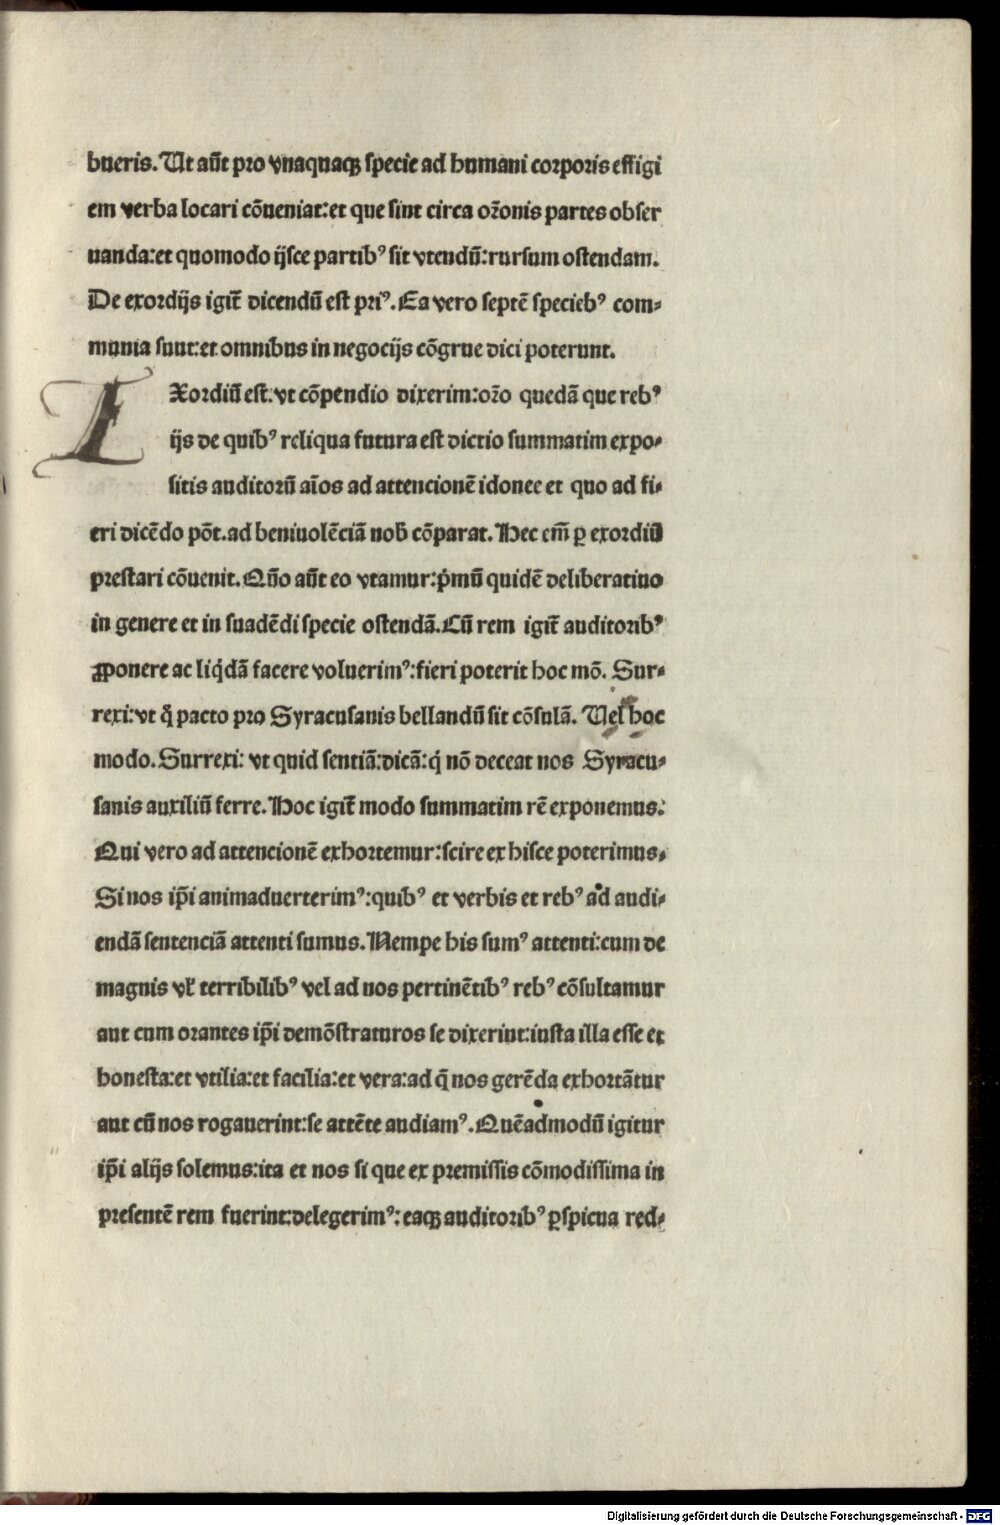 bueris. Ut aūt pro vnaquaqꝫ specie ad humani corporis effigi
em verba locari cōueniat: et que sint circa or̄onis partes obser
uanda: et quomodo ijsce partibꝰ sit vtendū: rursum ostendam.
De exordijs igit̄ dicendū est priꝰ. Ea vero septē speciebꝰ com⸗
munia sunt: et omnibus in negocijs cōgrue dici poterunt.
EXordiū est. vt cōpendio dixerim: or̄o quedā que rebꝰ
ijs de quibꝰ reliqua futura est dictio summatim expo⸗
sitis auditorū aīos ad attencionē idonee et quo ad fi⸗
eri dicēdo pōt. ad beniuolēciā nob̄ cōparat. Hec em̄ ꝑ exordiū
prestari cōuenit. Qūo aūt eo vtamur: pͥmū quidē deliberatiuo
in genere et in suadēdi specie ostendā. Cū rem igit̄ auditoribꝰ
ꝓponere ac liqͥdā facere voluerimꝰ: fieri poterit hoc mō. Sur⸗
rexi: vt qͦ pacto pro Syracusanis bellandū sit cōsulā. Vel hoc
modo. Surrexi: vt quid sentiā: dicā: qͥ nō deceat nos Syracu⸗
sanis auxiliū ferre. Hoc igit̄ modo summatim rē exponemus:
Qui vero ad attencionē exhortemur: scire ex hisce poterimus⸗
Si nos ip̄i animaduerterimꝰ: quibꝰ et verbis et rebꝰ ad audi⸗
endā sentenciā attenti sumus. Nempe his sumꝰ attenti: cum de
magnis vꝉ terribilibꝰ vel ad nos pertinētibꝰ rebꝰ cōsultamur
aut cum orantes ip̄i demōstraturos se dixerint: iusta illa esse et
honesta: et vtilia: et facilia: et vera: ad q̄ nos gerēda exhortātur
aut cū nos rogauerint: se attēte audiamꝰ. Quēadmodū igitur
ip̄i alijs solemus: ita et nos si que ex premissis cōmodissima in
presentē rem fuerint: delegerimꝰ: eaqꝫ auditoribꝰ ꝑspicua red⸗
Digitalisierung gefördert durch die Deutsche Forschungsgemeinschaft - DFG